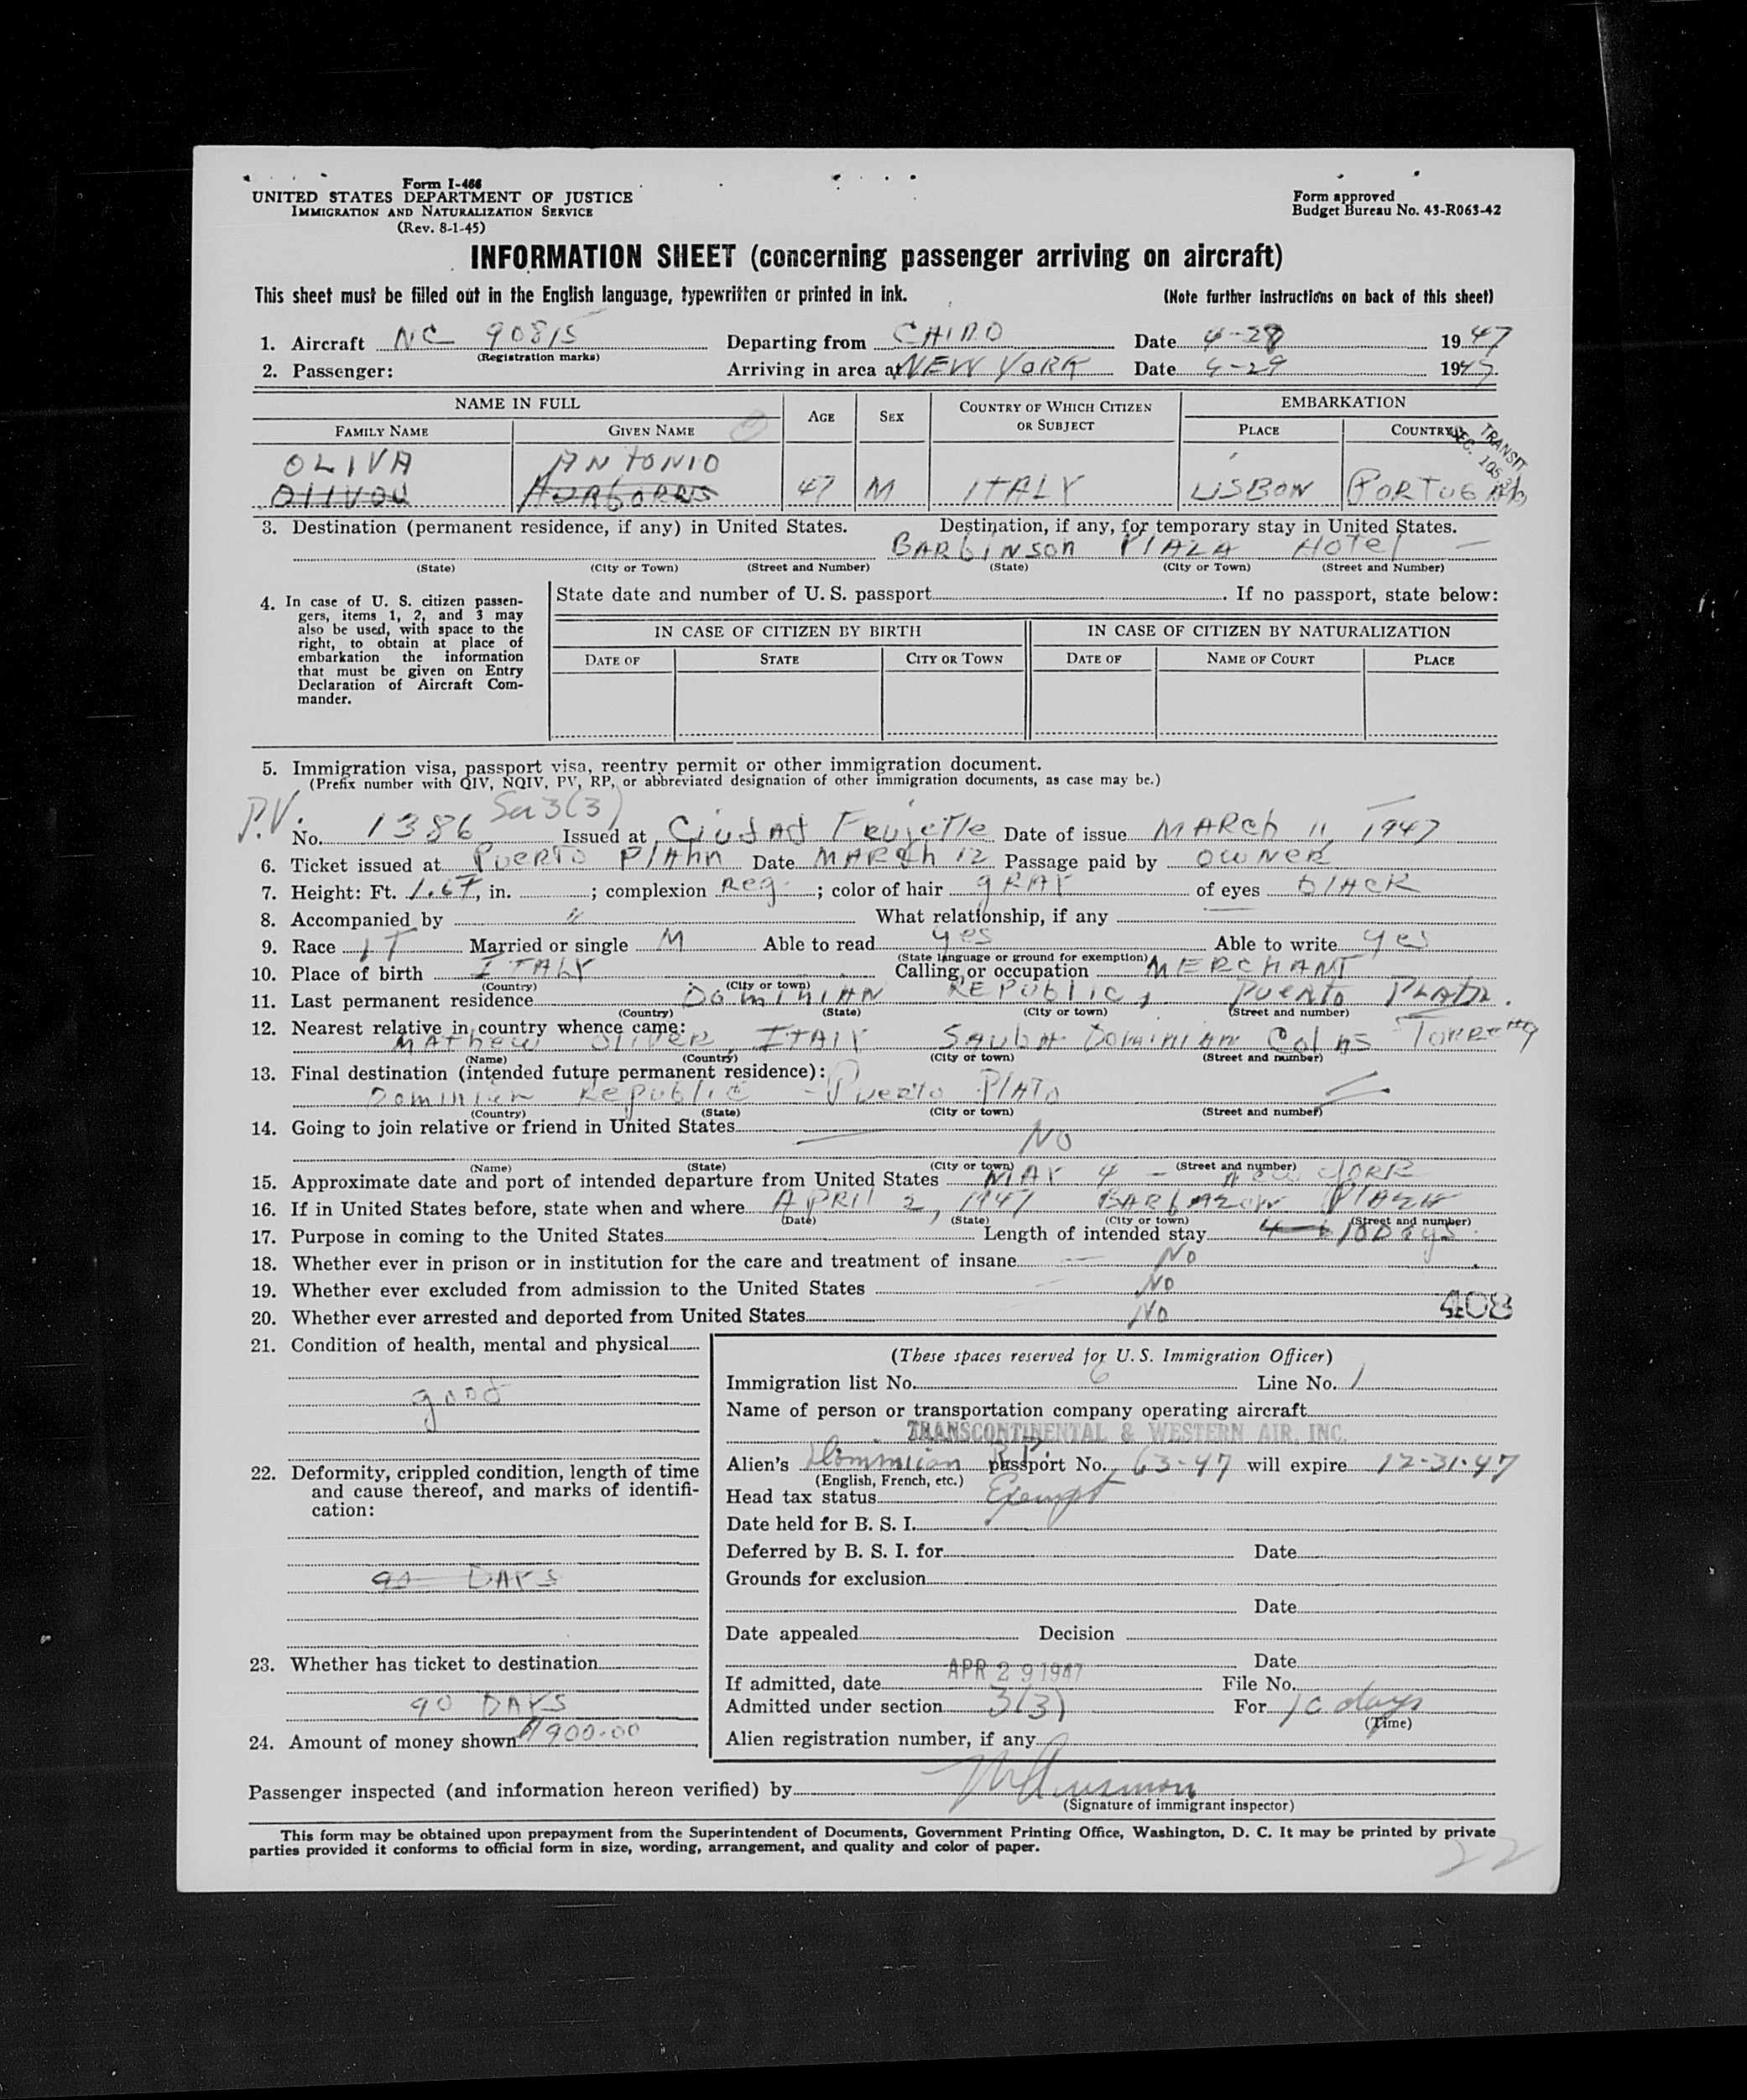 Form I-466
UNITED STATES DEPARTMENT OF JUSTICE
IMMIGRATION AND NATURALIZATION SERVICE
(Rev. 8-1-45)
Form approved
Budget Bureau No. 43-R063-42
INFORMATION SHEET (concerning passenger arriving on aircraft)
This sheet must be filled out in the English language, typewritten or printed in ink. (Note further instructions on back of this sheet)
1. Aircraft NC 90815 Departing from CAIRO Date 4-28 1947
(Registration marks)
2. Passenger: Arriving in area at NEW YORK Date 4-29 1947
NAME IN FULL AGE SEX COUNTRY OF WHICH CITIZEN OR SUBJECT EMBARKATION
FAMILY NAME GIVEN NAME PLACE COUNTRY
TRANSIT
OLIVA ANTONIO
47 M ITALY LISBON PORTUGAL
3. Destination (permanent residence, if any) in United States. Destination, if any, for temporary stay in United States.
BARBINSON PLAZA HOTEL
(State) (City or Town) (Street and Number) (State) (City or Town) (Street and Number)
4. In case of U. S. citizen passengers, items 1, 2, and 3 may also be used, with space to the right, to obtain at place of embarkation the information that must be given on Entry Declaration of Aircraft Commander.
State date and number of U. S. passport. If no passport, state below:
IN CASE OF CITIZEN BY BIRTH IN CASE OF CITIZEN BY NATURALIZATION
DATE OF STATE CITY OR TOWN DATE OF NAME OF COURT PLACE
5. Immigration visa, passport visa, reentry permit or other immigration document.
(Prefix number with QIV, NQIV, PV, RP, or abbreviated designation of other immigration documents, as case may be.)
P.V. Sec 3(3)
No. 1386 Issued at Ciudad Date of issue MARCH 11, 1947
6. Ticket issued at PUERTO Date MARCH 12 Passage paid by OWNER
7. Height: Ft. 1.67, in. ; complexion Reg. ; color of hair GRAY of eyes BLACK
8. Accompanied by " What relationship, if any
9. Race IT Married or single M Able to read yes Able to write yes
(State language or ground for exemption)
10. Place of birth ITALY Calling or occupation MERCHANT
(Country) (City or town)
11. Last permanent residence DOMINIAN REPUBLIC, PUERTO PLATA.
(Country) (State) (City or town) (Street and number)
12. Nearest relative in country whence came:
MATHEW OLIVER, ITALY
(Name) (Country) (City or town) (Street and number)
13. Final destination (intended future permanent residence):
Dominian Republic - Puerto PLATA
(Country) (State) (City or town) (Street and number)
14. Going to join relative or friend in United States
NO
(Name) (State) (City or town) (Street and number)
15. Approximate date and port of intended departure from United States MAY 4 - NEW YORK
16. If in United States before, state when and where APRIL 2, 1947 PLAZA
(Date) (State) (City or town) (Street and number)
17. Purpose in coming to the United States Length of intended stay 10 Days
18. Whether ever in prison or in institution for the care and treatment of insane NO
19. Whether ever excluded from admission to the United States NO
20. Whether ever arrested and deported from United States NO
408
21. Condition of health, mental and physical
good
22. Deformity, crippled condition, length of time and cause thereof, and marks of identification:
90 DAYS
23. Whether has ticket to destination
90 DAYS
24. Amount of money shown $1900.00
(These spaces reserved for U. S. Immigration Officer)
Immigration list No. 6 Line No. 1
Name of person or transportation company operating aircraft
TRANSCONTINENTAL & WESTERN AIR, INC.
Alien's Dominican R.P. passport No. 63-47 will expire 12-31-47
(English, French, etc.)
Head tax status Exempt
Date held for B. S. I.
Deferred by B. S. I. for Date
Grounds for exclusion
Date
Date appealed Decision
Date
If admitted, date APR 29 1947 File No.
Admitted under section 3(3) For 10 days
(Time)
Alien registration number, if any
Passenger inspected (and information hereon verified) by
(Signature of immigrant inspector)
This form may be obtained upon prepayment from the Superintendent of Documents, Government Printing Office, Washington, D. C. It may be printed by private
parties provided it conforms to official form in size, wording, arrangement, and quality and color of paper.
22